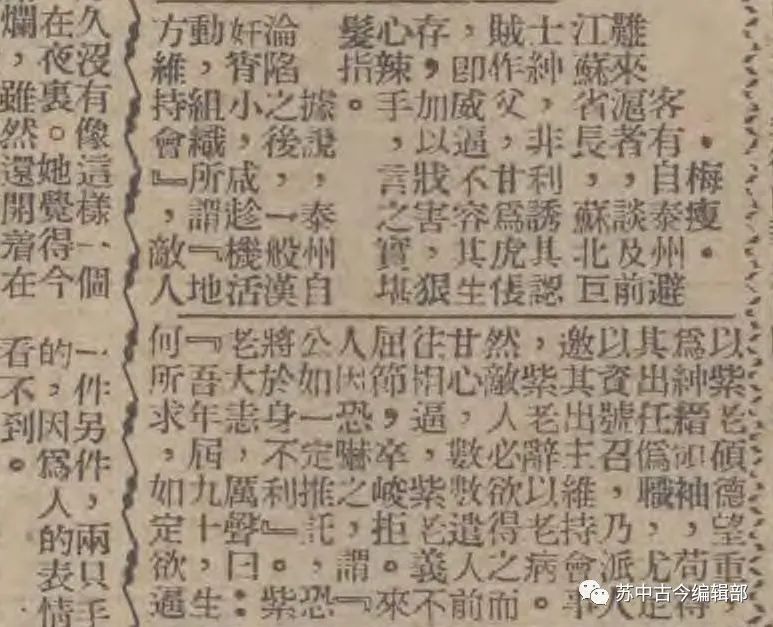 ．梅瘦．
客有自泰州避
難來滬者，談及前
江蘇省長，蘇北巨
士紳，非利誘其認
賊作父，甘爲虎倀
，卽威逼，不容其生
存，加以戕害，狠
心辣手，言之實堪
髮指。
據說，泰州自
淪陷之後，一般漢
奸宵小，咸趁機活
動，組織所謂『地
方維持會』，敵人
以紫老碩德望重
爲紳縉領袖，苟得
其出任僞職，尤足
以資號召，乃派人
邀其出主維持會事
，紫老辭以老病。
然敵人必欲得之而
甘心，數數遣人前
往相逼，紫老義不
屈節，卒峻拒，來
人因恐嚇之，謂『
公如一定推託，恐
將於身不利』。紫
老大恚，厲聲曰：
『吾年屆九十，生
何所求，如定欲逼
久沒有像這樣一個
在夜裏。她覺得今
爛，雖然還開着在
一件另件，兩只手
的，因爲人的表情
看不到。
苏中古今编辑部